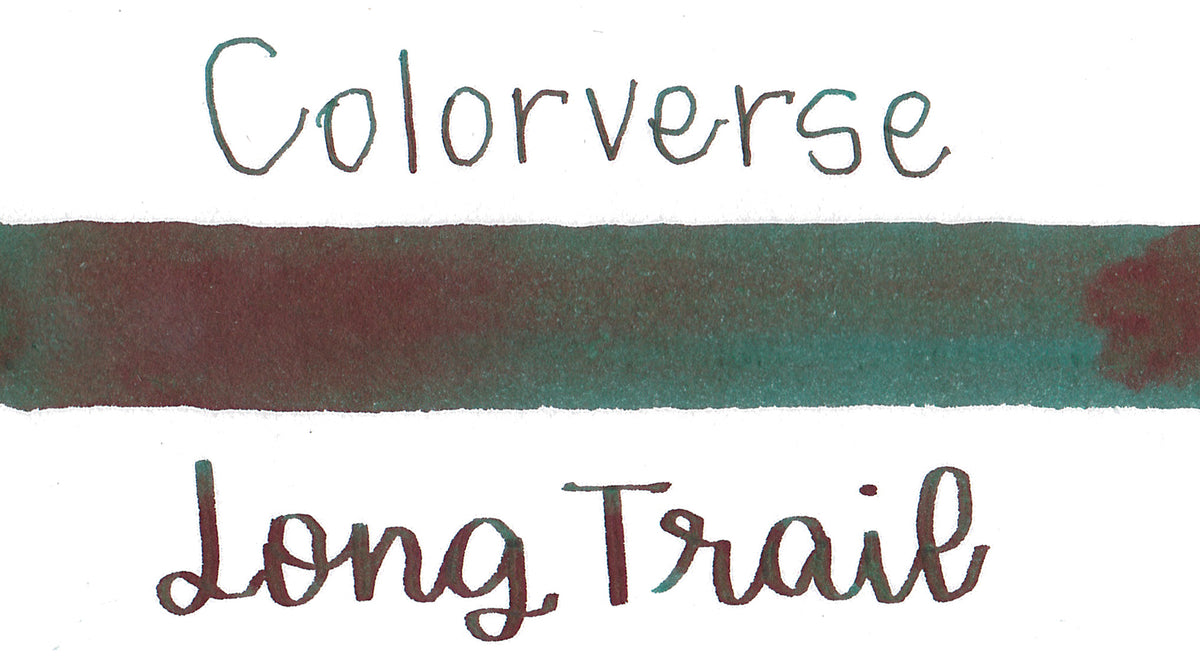 Colorverse
Long Trail